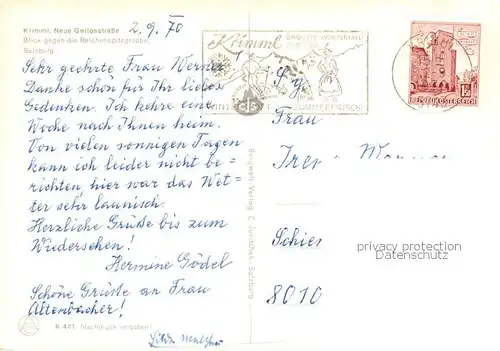 Krimml, Neue Gerlosstraße
Blick gegen die Reichenspitzgruppe,
Salzburg
2.9.70
Sehr geehrte Frau Werner
Danke schön für Ihr liebes
Gedenken. Ich kehre eine
Woche nach Ihnen heim.
Von vielen sonnigen Tagen
kann ich leider nicht be=
richten, hier war das Wet=
ter sehr launisch.
Herzliche Grüße bis zum
Wiedersehen!
Hermine Gödel
Schöne Grüße an Frau
Altenbacher!
K 441 Nachdruck verboten
Bergwelt-Verlag C. Jurischek, Salzburg
Krimml
REPUBLIK ÖSTERREICH
Frau
8010
privacy protection
Datenschutz